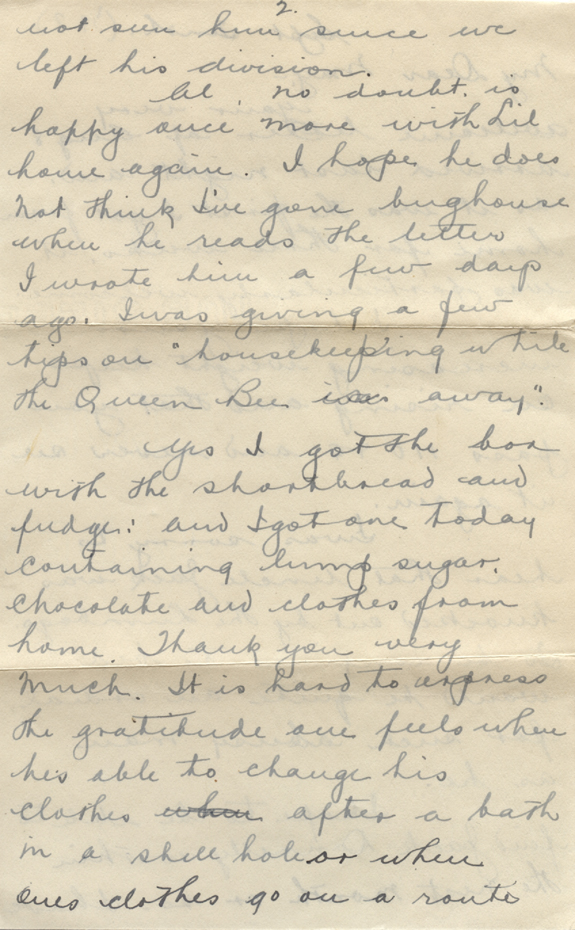 2.
not seen him since we
left his division.
Al, no doubt is
happy once more with Lil
home again. I hope he does
not think I've gone bughouse
when he reads the letter
I wrote him a few days
ago. I was giving a few
tips on "housekeeping while
the Queen Bee was away".
Yes I got the box
with the shortbread and
fudge: and I got one today
containing lump sugar,
chocolate and clothes from
home. Thank you very
much. It is hard to express
the gratitude one feels when
he's able to change his
clothes when after a bath
in a shell hole or when
ones clothes go on a route